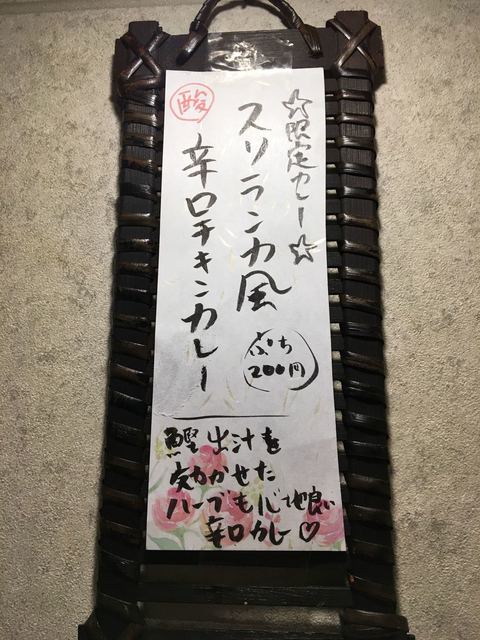 ☆限定カレー☆
スリランカ風
ぷち
200円
酸
辛口チキンカレー
鰹出汁を
効かせた
ハーブも心地良い
辛口カレー♡